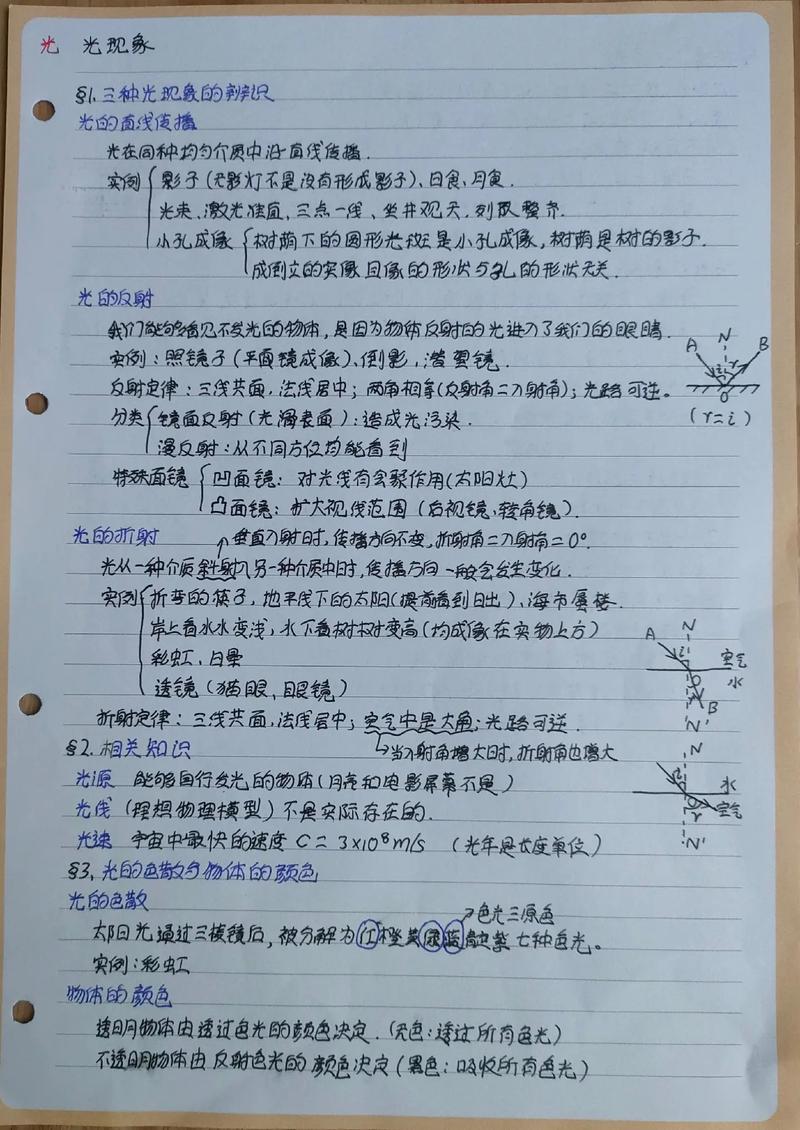 光 光现象
§1.三种光现象的辨识
光的直线传播
光在同种均匀介质中沿直线传播.
实例 影子(无影灯不是没有形成影子)、日食、月食.
光束、激光准直、三点一线、坐井观天、列队整齐.
小孔成像 树荫下的圆形光斑是小孔成像,树荫是树的影子.
成倒立的实像且像的形状与孔的形状无关.
光的反射
我们能够看见不发光的物体,是因为物体反射的光进入了我们的眼睛.
实例:照镜子(平面镜成像)、倒影、潜望镜.
反射定律:三线共面,法线居中;两角相等(反射角=入射角);光路可逆。
A N B
i r
O
(r=i)
分类 镜面反射(光滑表面):造成光污染.
漫反射:从不同方位均能看到
特殊面镜 凹面镜:对光线有会聚作用(太阳灶)
凸面镜:扩大视线范围(后视镜、转角镜).
光的折射
垂直入射时,传播方向不变,折射角=入射角=0°.
光从一种介质斜射入另一种介质中时,传播方向一般会发生变化.
实例 折弯的筷子,地平线下的太阳(提前看到日出)、海市蜃楼.
岸上看水水变浅,水下看树树变高(均成像在实物上方)
彩虹、日晕
透镜(猫眼、眼镜)
A N
i
空气
水
O
r
B
N'
折射定律:三线共面,法线居中;空气中是大角;光路可逆.
当入射角增大时,折射角也增大
§2.相关知识
光源 能够自行发光的物体(月亮和电影屏幕不是)
光线(理想物理模型)不是实际存在的.
光速 宇宙中最快的速度 C=3×10⁸m/s (光年是长度单位)
N
i
水
空气
r
N'
§3.光的色散与物体的颜色
光的色散
色光三原色
太阳光通过三棱镜后,被分解为红橙黄绿蓝靛紫七种色光。
实例:彩虹
物体的颜色
透明物体由透过色光的颜色决定.(无色:透过所有色光)
不透明物体由反射色光的颜色决定(黑色:吸收所有色光)